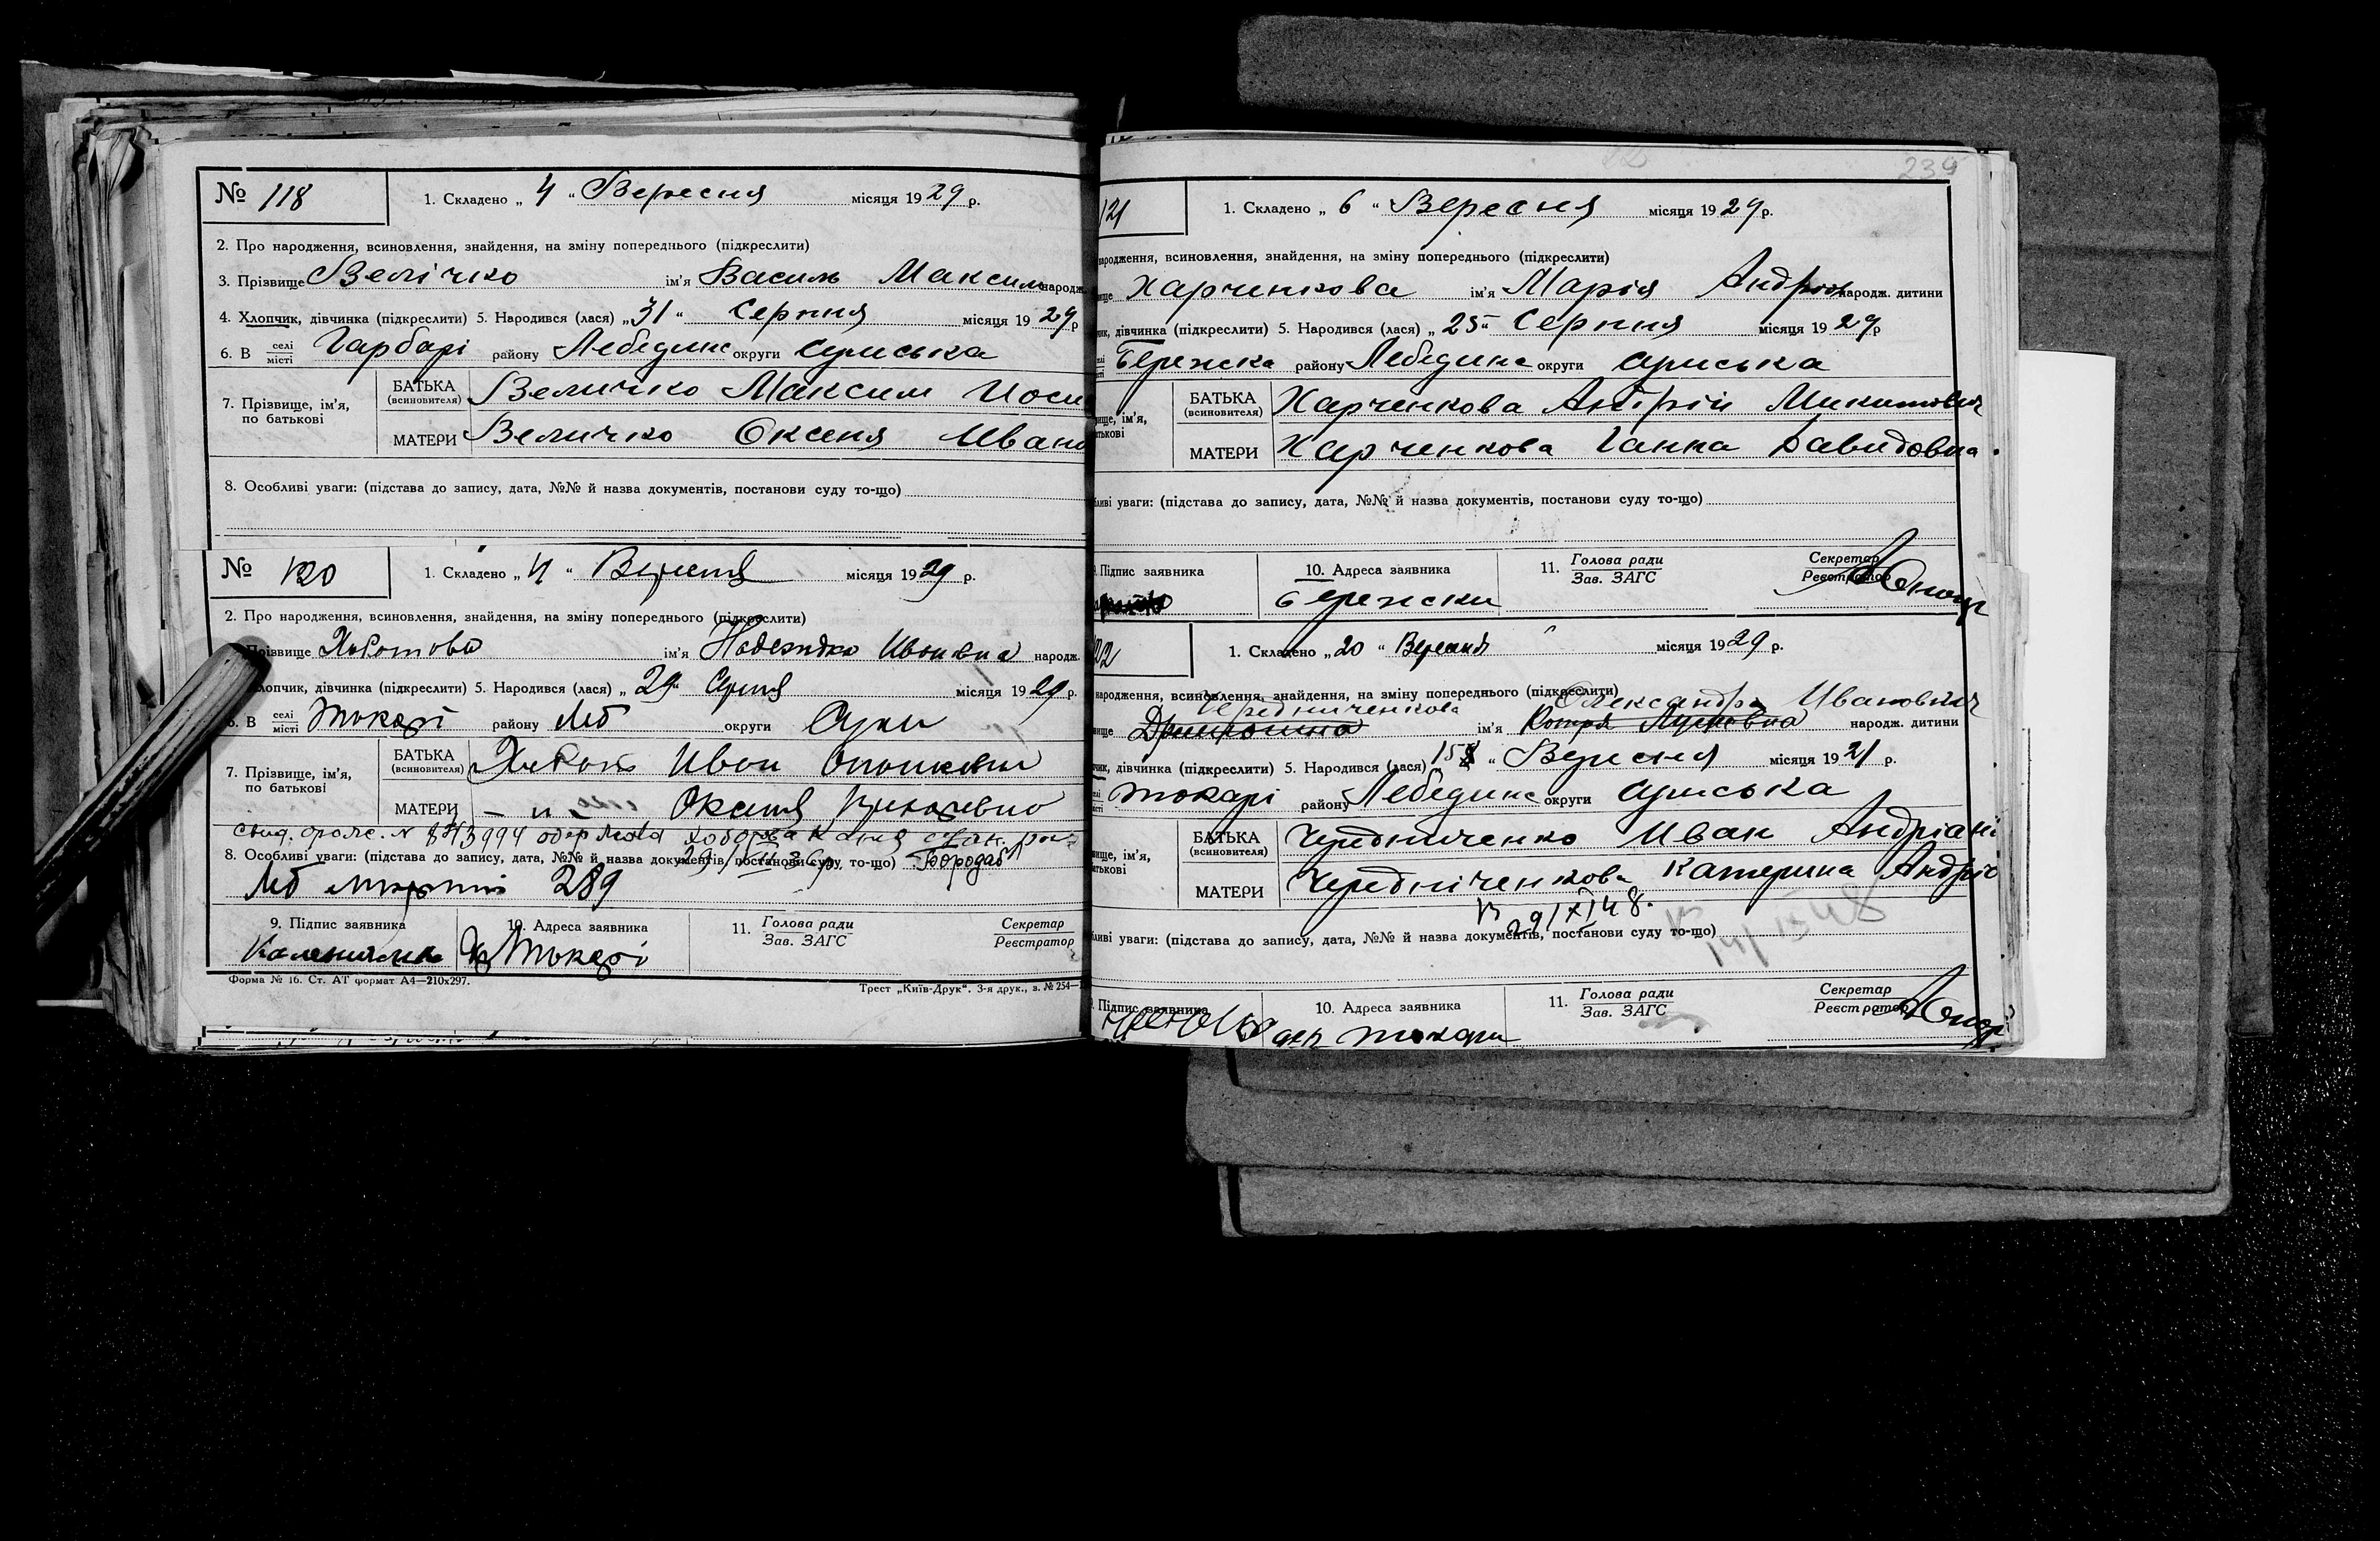 № 118
1. Складено „ 4 “ Вересня місяця 1929 р.
2. Про народження, всиновлення, знайдення, на зміну попереднього (підкреслити)
3. Прізвище Велічко ім'я Василь Максим народж.
4. Хлопчик, дівчинка (підкреслити) 5. Народився (лася) „ 31 “ Серпня місяця 1929 р
6. В селі місті Гарбарі району Лебединс округи Сумська
7. Прізвище, ім'я, по батькові
БАТЬКА (всиновителя) Величко Максим Йоси
МАТЕРИ Величко Оксеня Ивано
8. Особливі уваги: (підстава до запису, дата, №№ й назва документів, постанови суду то-що)
№ 120
1. Складено „ 4 “ Вересня місяця 1929 р.
2. Про народження, всиновлення, знайдення, на зміну попереднього (підкреслити)
Прізвище ім'я Надежда Ивановна народж.
хлопчик, дівчинка (підкреслити) 5. Народився (лася) „ 29 “ Серпня місяця 1929 р.
6. В селі місті Токарі району Леб округи Суми
7. Прізвище, ім'я, по батькові
БАТЬКА (всиновителя) Иван
МАТЕРИ — и — Оксеня
N 843994
8. Особливі уваги: (підстава до запису, дата, №№ й назва документів, постанови суду, то-що)
Леб 289
9. Підпис заявника
10. Адреса заявника Токарі
11. Голова ради Зав. ЗАГС
Секретар Реєстратор
Форма № 16. Ст. АТ формат А4—210х297.
Трест „Київ-Друк“. 3-я друк., з. № 254—
239
121
1. Складено „ 6 “ Вересня місяця 1929 р.
народження, всиновлення, знайдення, на зміну попереднього (підкреслити)
Харченкова ім'я Марія Андрій народж. дитини
дівчинка (підкреслити) 5. Народився (лася) „ 25 “ Серпня місяця 1929 р
Бережска району Лебединс округи Сумська
БАТЬКА (всиновителя) Харченкова Андрій Микитович
МАТЕРИ Харченкова Ганна Давидовна
уваги: (підстава до запису, дата, №№ й назва документів, постанови суду то-що)
Підпис заявника
10. Адреса заявника Бережски
11. Голова ради Зав. ЗАГС
Секретар Реєстратор
122
1. Складено „ 20 “ Вересня місяця 1929 р.
народження, всиновлення, знайдення, на зміну попереднього (підкреслити)
Чередниченкова Олександра Иванович
ім'я народж. дитини
дівчинка (підкреслити) 5. Народився (лася) 15 “ Вересня місяця 1921 р.
Токарі району Лебединс округи Сумська
БАТЬКА (всиновителя) Чередниченко Иван Андріані
МАТЕРИ Чередніченкова Катерина Андріє
29/XI 48.
уваги: (підстава до запису, дата, №№ й назва документів, постанови суду то-що)
Підпис заявника
10. Адреса заявника Токари
11. Голова ради Зав. ЗАГС
Секретар Реєстратор